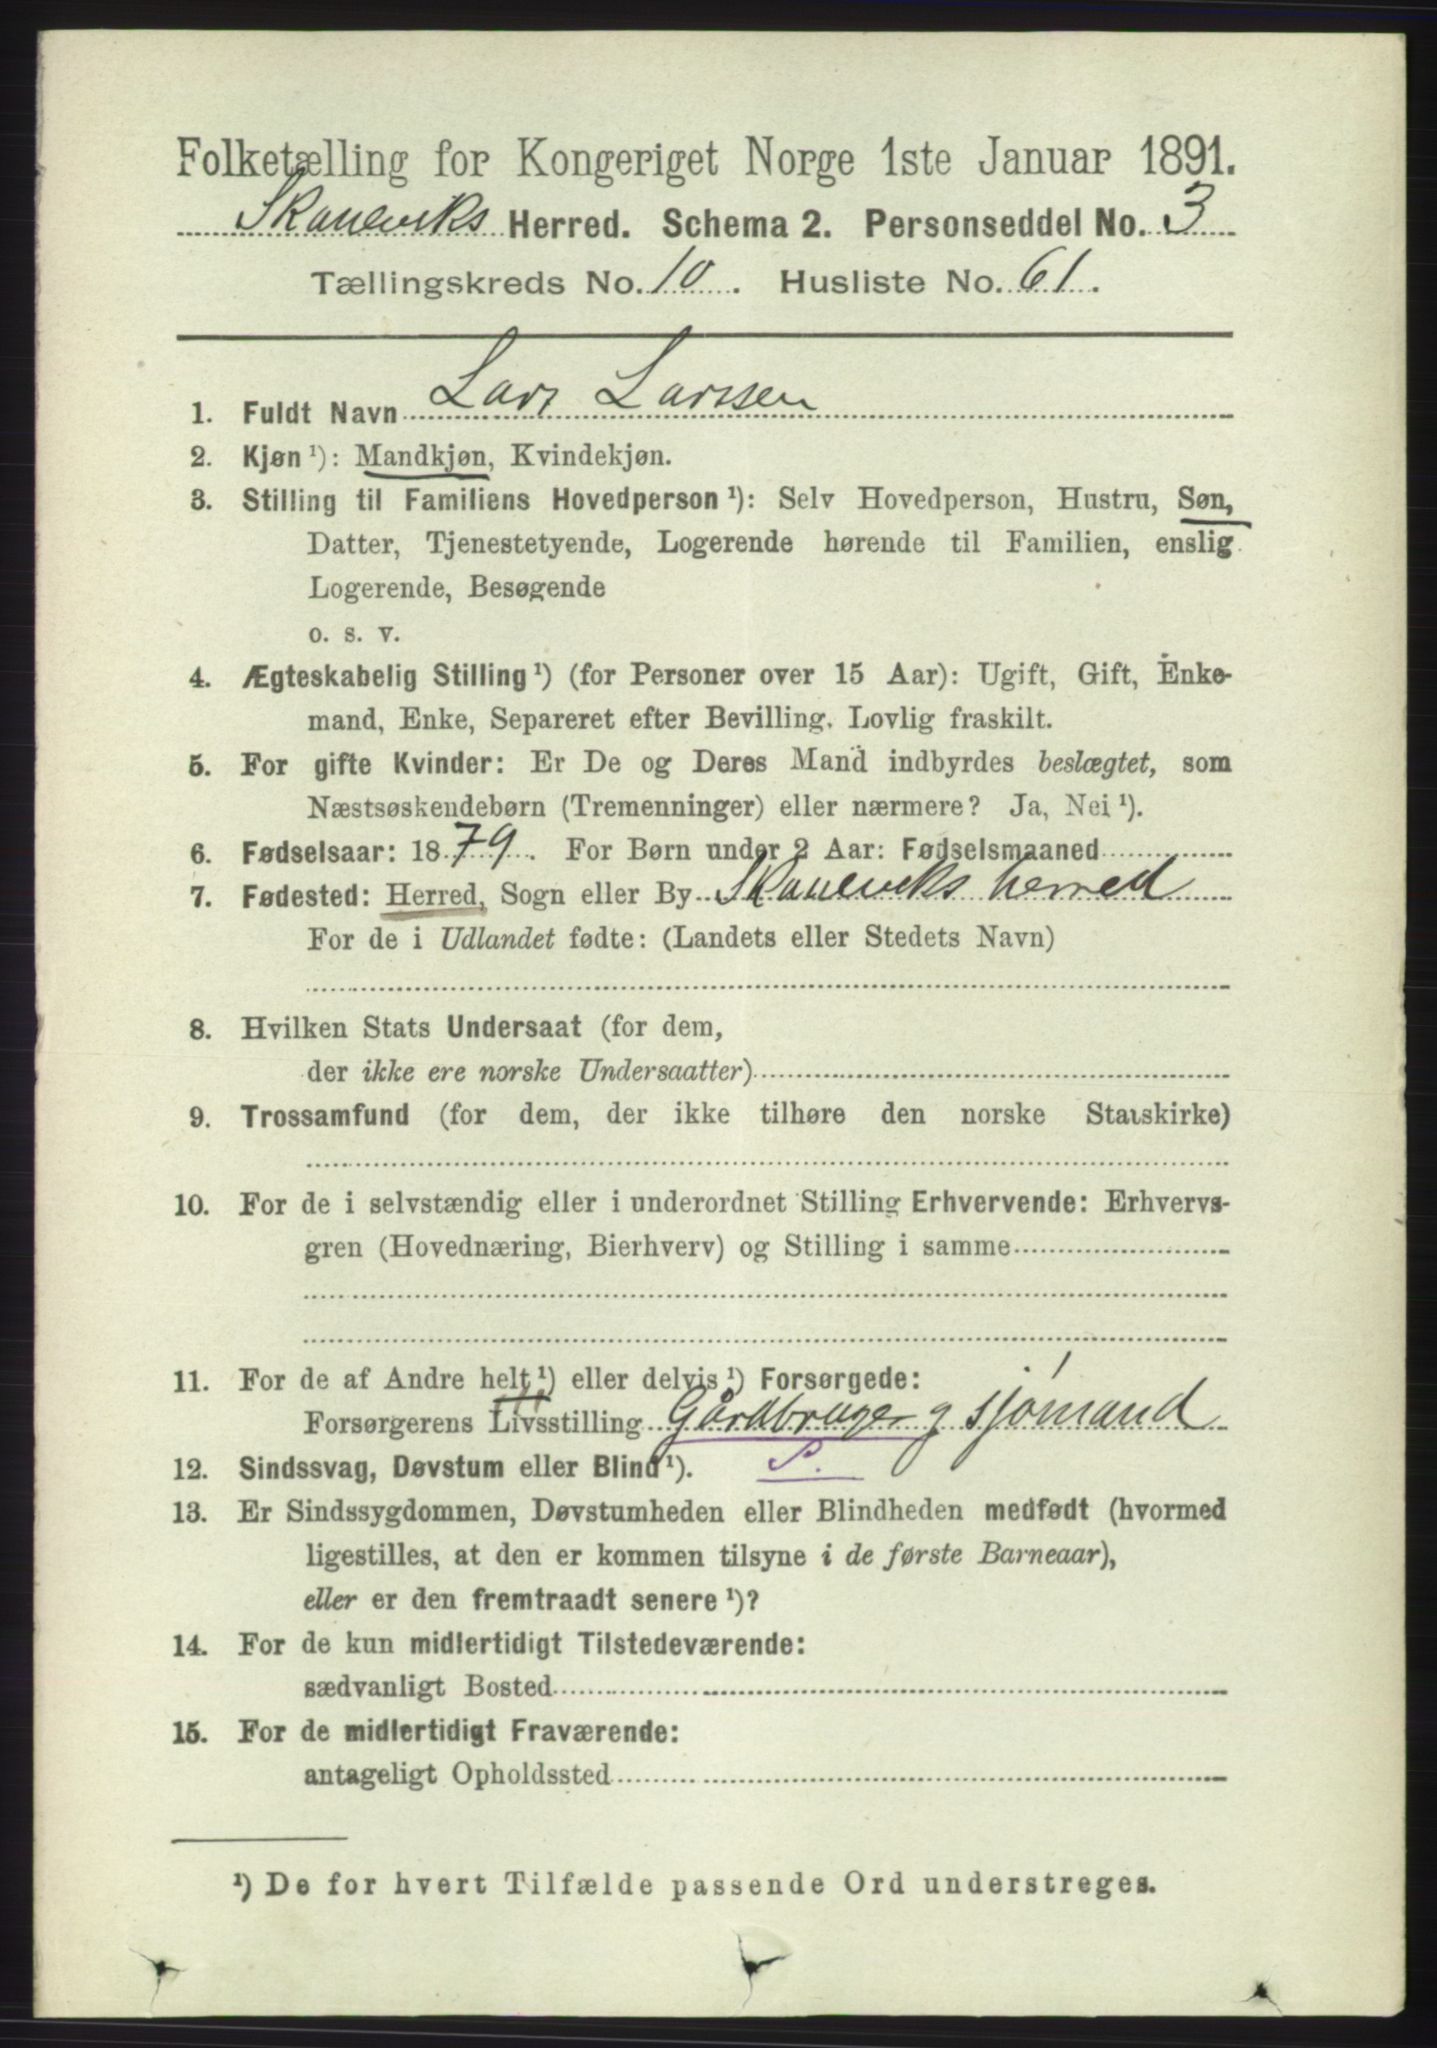 Folketælling for Kongeriget Norge 1ste Januar 1891.
Skaneviks Herred. Schema 2. Personseddel No. 3
Tællingskreds No. 10. Husliste No. 61.
1. Fuldt Navn Lars Larssen
2. Kjøn ¹): Mandkjøn, Kvindekjøn.
3. Stilling til Familiens Hovedperson ¹): Selv Hovedperson, Hustru, Søn,
Datter, Tjenestetyende, Logerende hørende til Familien, enslig
Logerende, Besøgende
o. s. v.
4. Ægteskabelig Stilling ¹) (for Personer over 15 Aar): Ugift, Gift, Enke-
mand, Enke, Separeret efter Bevilling. Lovlig fraskilt.
5. For gifte Kvinder: Er De og Deres Mand indbyrdes beslægtet, som
Næstsøskendebørn (Tremenninger) eller nærmere? Ja, Nei ¹).
6. Fødselsaar: 1879. For Børn under 2 Aar: Fødselsmaaned
7. Fødested: Herred, Sogn eller By Skaneviks herred
For de i Udlandet fødte: (Landets eller Stedets Navn)
8. Hvilken Stats Undersaat (for dem,
der ikke ere norske Undersaatter)
9. Trossamfund (for dem, der ikke tilhøre den norske Statskirke)
10. For de i selvstændig eller i underordnet Stilling Erhvervende: Erhvervs-
gren (Hovednæring, Bierhverv) og Stilling i samme
11. For de af Andre helt ¹) eller delvis ¹) Forsørgede:
Forsørgerens Livsstilling Gårdbruger g sjømand
12. Sindssvag, Døvstum eller Blind ¹). S.
13. Er Sindssygdommen, Døvstumheden eller Blindheden medfødt (hvormed
ligestilles, at den er kommen tilsyne i de første Barneaar),
eller er den fremtraadt senere ¹)?
14. For de kun midlertidigt Tilstedeværende:
sædvanligt Bosted
15. For de midlertidigt Fraværende:
antageligt Opholdssted
¹) De for hvert Tilfælde passende Ord understreges.